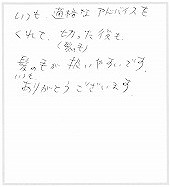 いつも、適格なアドバイスを
くれて、切った後も、
(気も)
髪の毛が扱いやすいです。
いつも
ありがとうございます